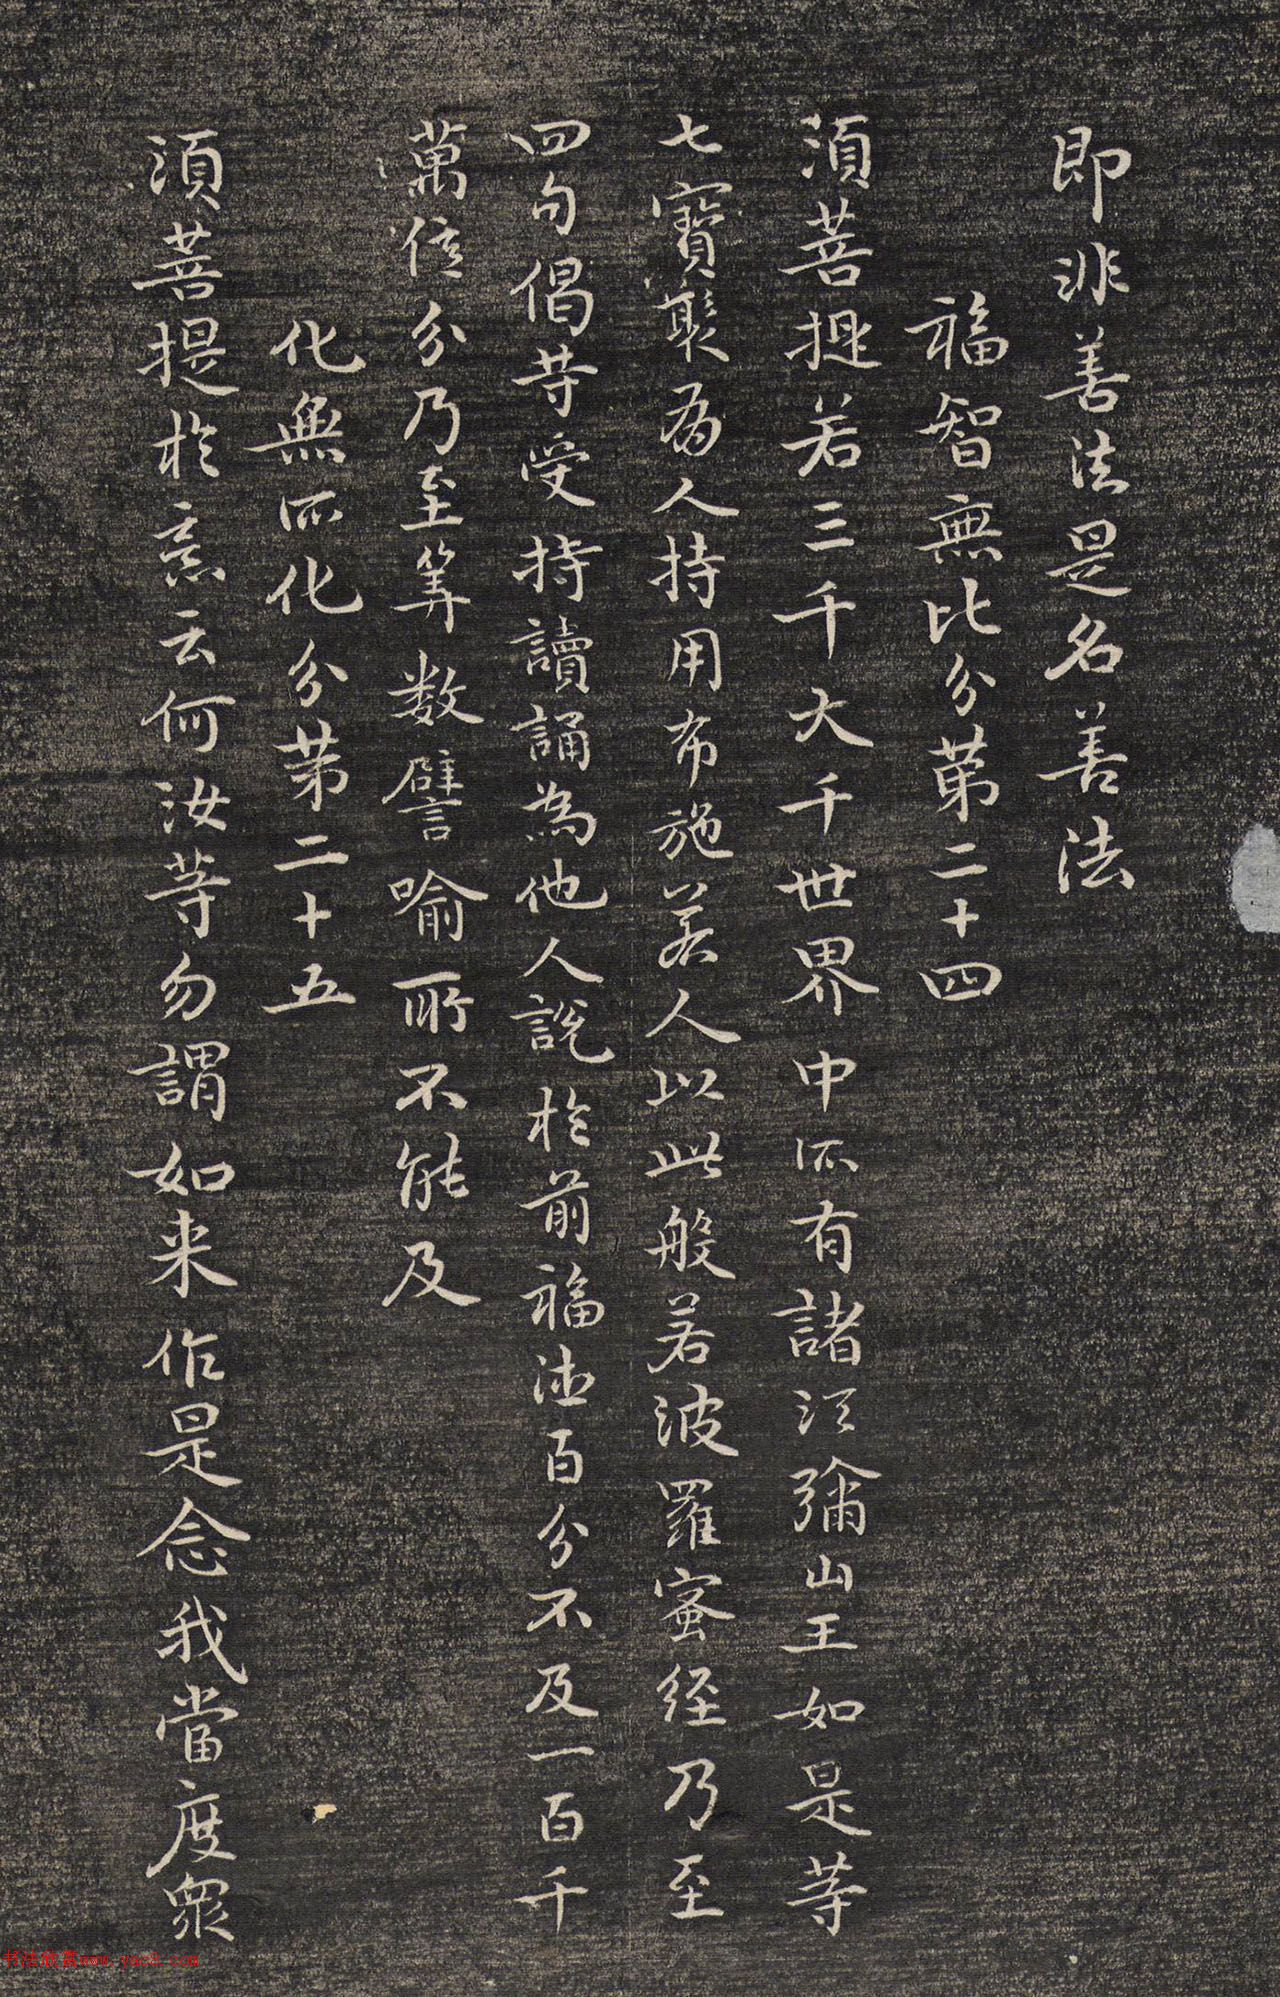 即非善法是名善法
福智無比分第二十四
須菩提若三千大千世界中所有諸須彌山王如是等
七寶聚有人持用布施若人以此般若波羅蜜經乃至
四句偈等受持讀誦為他人說於前福德百分不及一百千
萬億分乃至筭數譬喻所不能及
化無所化分第二十五
須菩提於意云何汝等勿謂如来作是念我當度眾
书法欣赏www.yac8.com